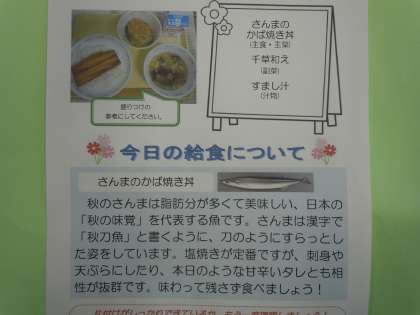 さんまの
かば焼き丼
(主食・主菜)
千草和え
(副菜)
すまし汁
(汁物)
盛りつけの
参考にしてください。
今日の給食について
さんまのかば焼き丼
秋のさんまは脂肪分が多くて美味しい、日本の
「秋の味覚」を代表する魚です。さんまは漢字で
「秋刀魚」と書くように、刀のようにすらっとし
た姿をしています。塩焼きが定番ですが、刺身や
天ぷらにしたり、本日のような甘辛いタレとも相
性が抜群です。味わって残さず食べましょう！